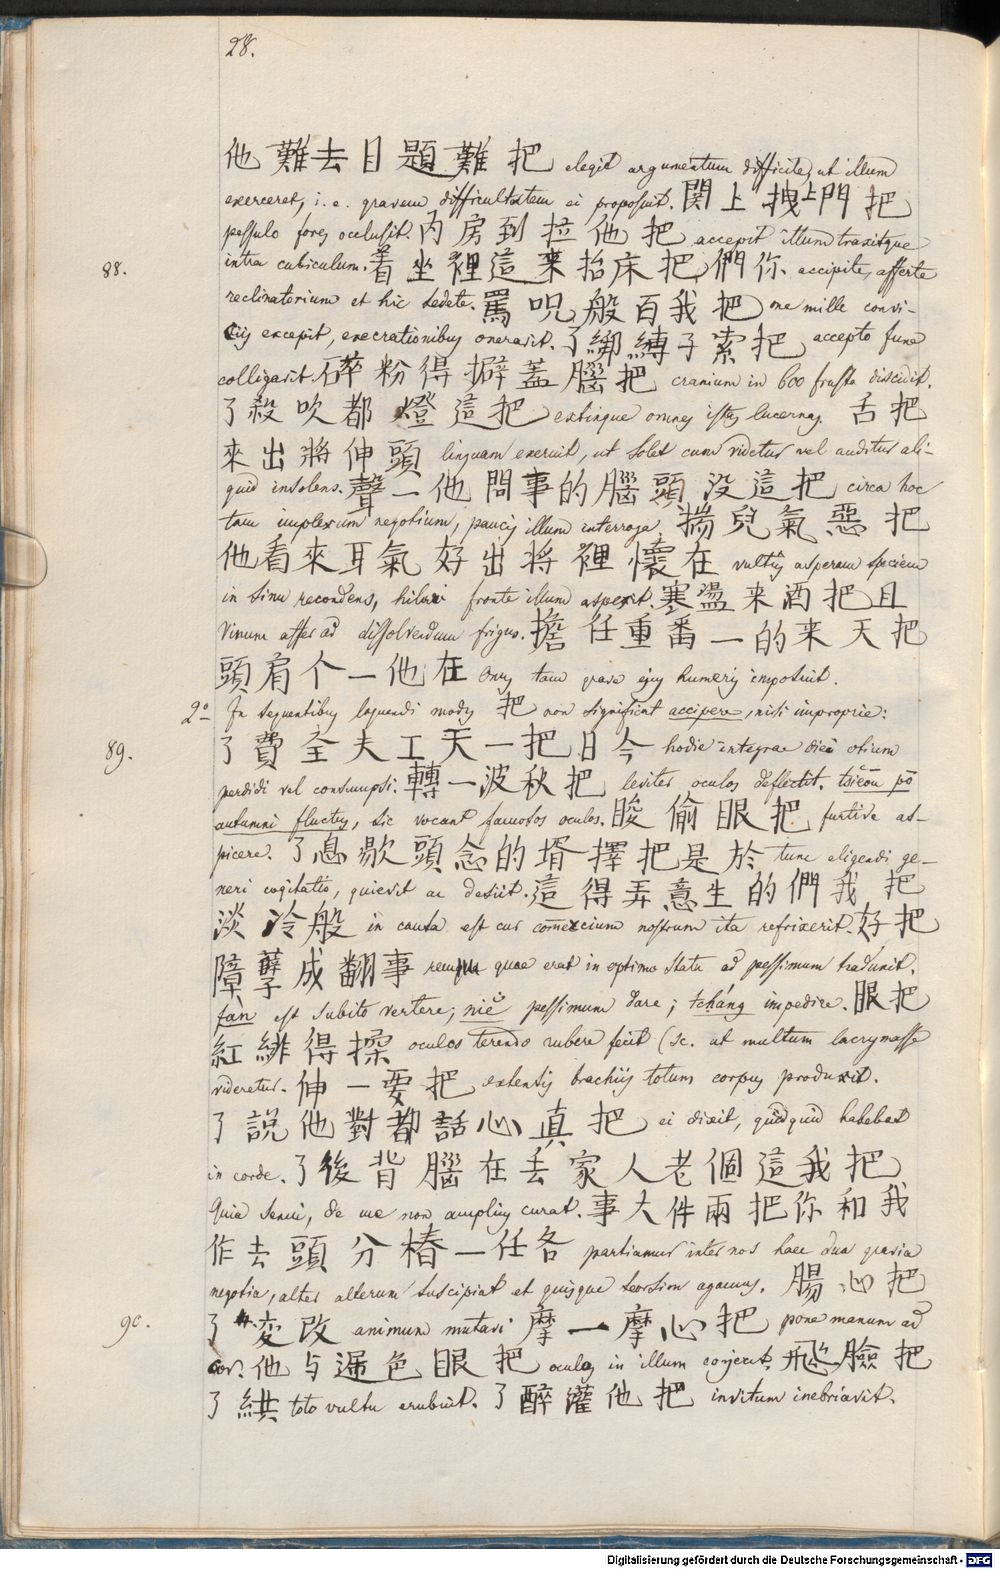 28.
把難題目去難他 elegit argumentum difficile, ut illum
exerceret, i. e. gravem difficultatem ei proposuit. 把門上拽上閂
pessulo fores occlusit. 把他拉到房內 accepit illum traxitque
88. intra cubiculum. 你們把床抬來這裡坐着 accipite, afferte
reclinatorium et hic sedete. 把我百般呪罵 me mille convi-
ciis excepit, execrationibus oneravit. 把索子縛綁了 accepto fune
colligavit. 把腦蓋擗得粉碎 cranium in 600 frusta discidit.
把這燈都吹殺了 extinque omnes istas lucernas. 把舌
頭伸將出來 linguam exeruit, ut solet cum videtur vel auditur ali-
quid insolens. 把這没頭腦的事問他一聲 circa hoc
tam implexum negotium, paucis illum interroga. 把惡氣兒揣
在懷裡將出好氣耳來看他 vultus asperam speciem
in sinu recondens, hilari fronte illum aspexit. 且把酒来盪寒
Vinum affer ad dissolvendum frigus. 把天来的一番重任擔
在他一个肩頭 Onus tam grave ejus humeris imposuit.
2º In sequentibus loquendi modis 把 non significat accipere, nisi improprie:
89. 今日把一天工夫全費了 hodie integrae diei otium
perdidi vel consumpsi. 把秋波一轉 leviter oculos deflectit. tsieou pō
autumni fluctus, sic vocant famosos oculos. 把眼偷睃 furtive as-
picere. 於是把擇壻的念頭歇息了 tunc eligendi ge-
neri cogitatio, quievit ac desiit. 把我們的生意弄得這
般冷淡 in causa est cur comercium nostrum ita refrixerit. 把好
事翻成孽障 rem quae erat in optimo statu ad pessimum traduxit.
fan est subito vertere; niĕ pessimum dare; tcháng impedire. 把眼
揉得緋紅 oculos terendo rubere fecit (sc. ut multum lacrymasse
videretur. 把要一伸 extentis brachiis totum corpus produxit.
把真心話都對他說了 ei dixit, quidquid habebat
in corde. 把我這個老人家丢在腦背後了
Quia senui, de me non amplius curat. 我和你把兩件大事
各任一樁分頭去作 partiamur inter nos haec duo gravia
negotia, alter alterum suscipiat et quisque seorsim agamus. 把心腸
90. 改変了 animum mutavi 把心摩一摩 pone manum ad
cor. 把眼色遞与他 oculos in illum conjecit. 把臉飛
紅了 toto vultu erubuit. 把他灌醉了 invitum inebriavit.
Digitalisierung gefördert durch die Deutsche Forschungsgemeinschaft - DFG